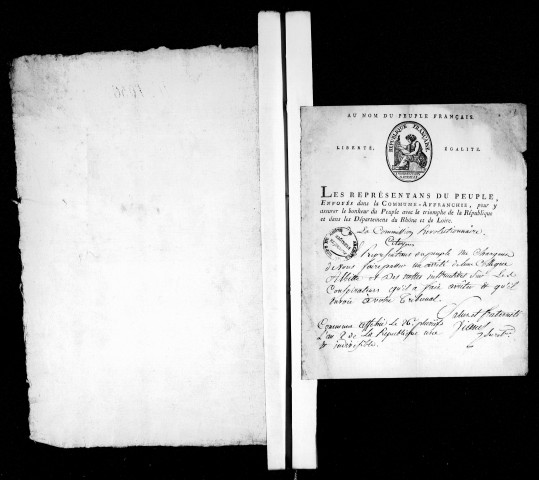 AU NOM DU PEUPLE FRANÇAIS.
LIBERTÉ, ÉGALITÉ.
RÉPUBLIQUE FRANÇAISE
LES REPRÉSENTANS DU PEUPLE,
ENVOYÉS dans la COMMUNE-AFFRANCHIE, pour y
assurer le bonheur du Peuple avec le triomphe de la République
et dans les Département du Rhône et de Loire.
La Commission Revolutionnaire.
Citoyens
Representans du peuple me chargent
de vous faire passer un arrêté de leur Collegue
et des notes sur les
Conspirateurs qu'il a fait arrêter & qu'il
envoie à votre Tribunal.
Salut et fraternité
Commune affranchie le 26 pluviose
L'an 2 de la République une
& indivisible.